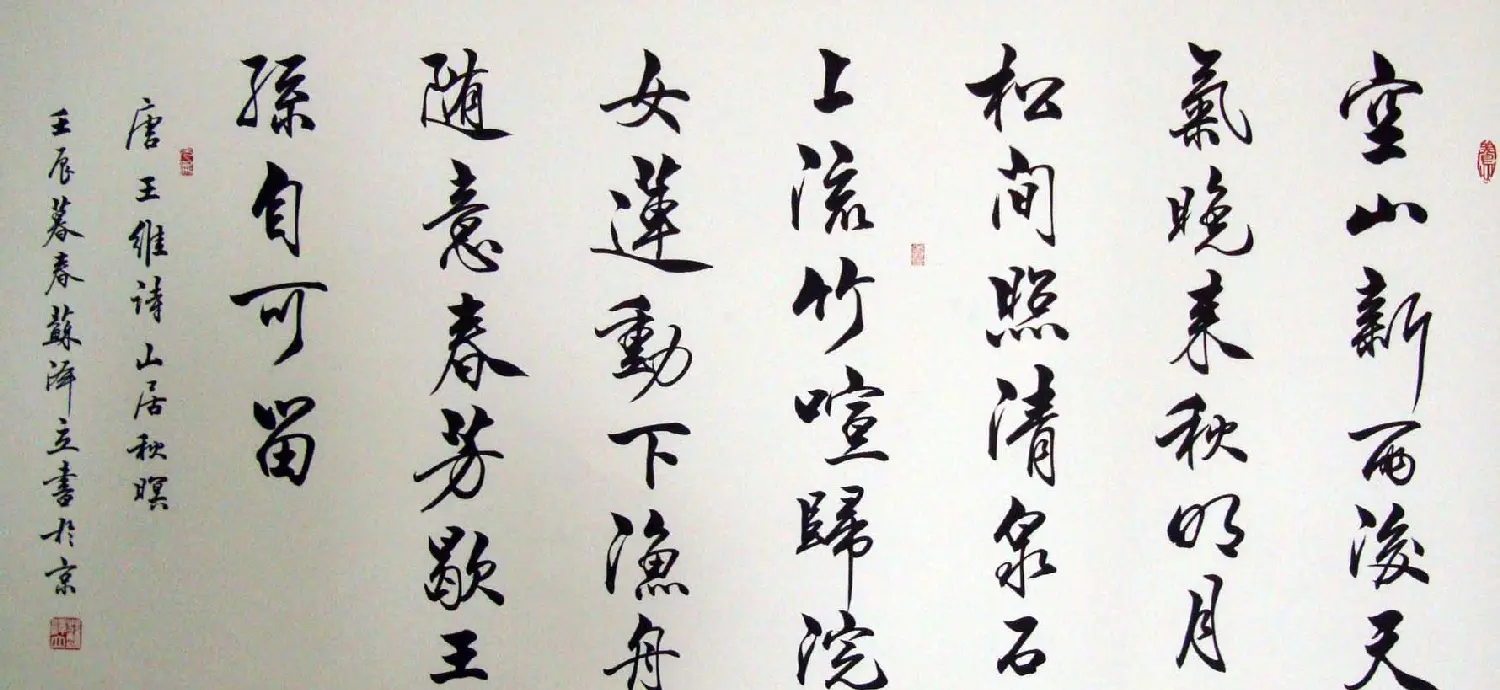 空山新雨後天
氣晚来秋明月
松间照清泉石
上流竹喧歸浣
女蓮動下漁舟
随意春芳歇王
孫自可留
唐王維诗山居秋暝
壬辰暮春蘇泽立書於京